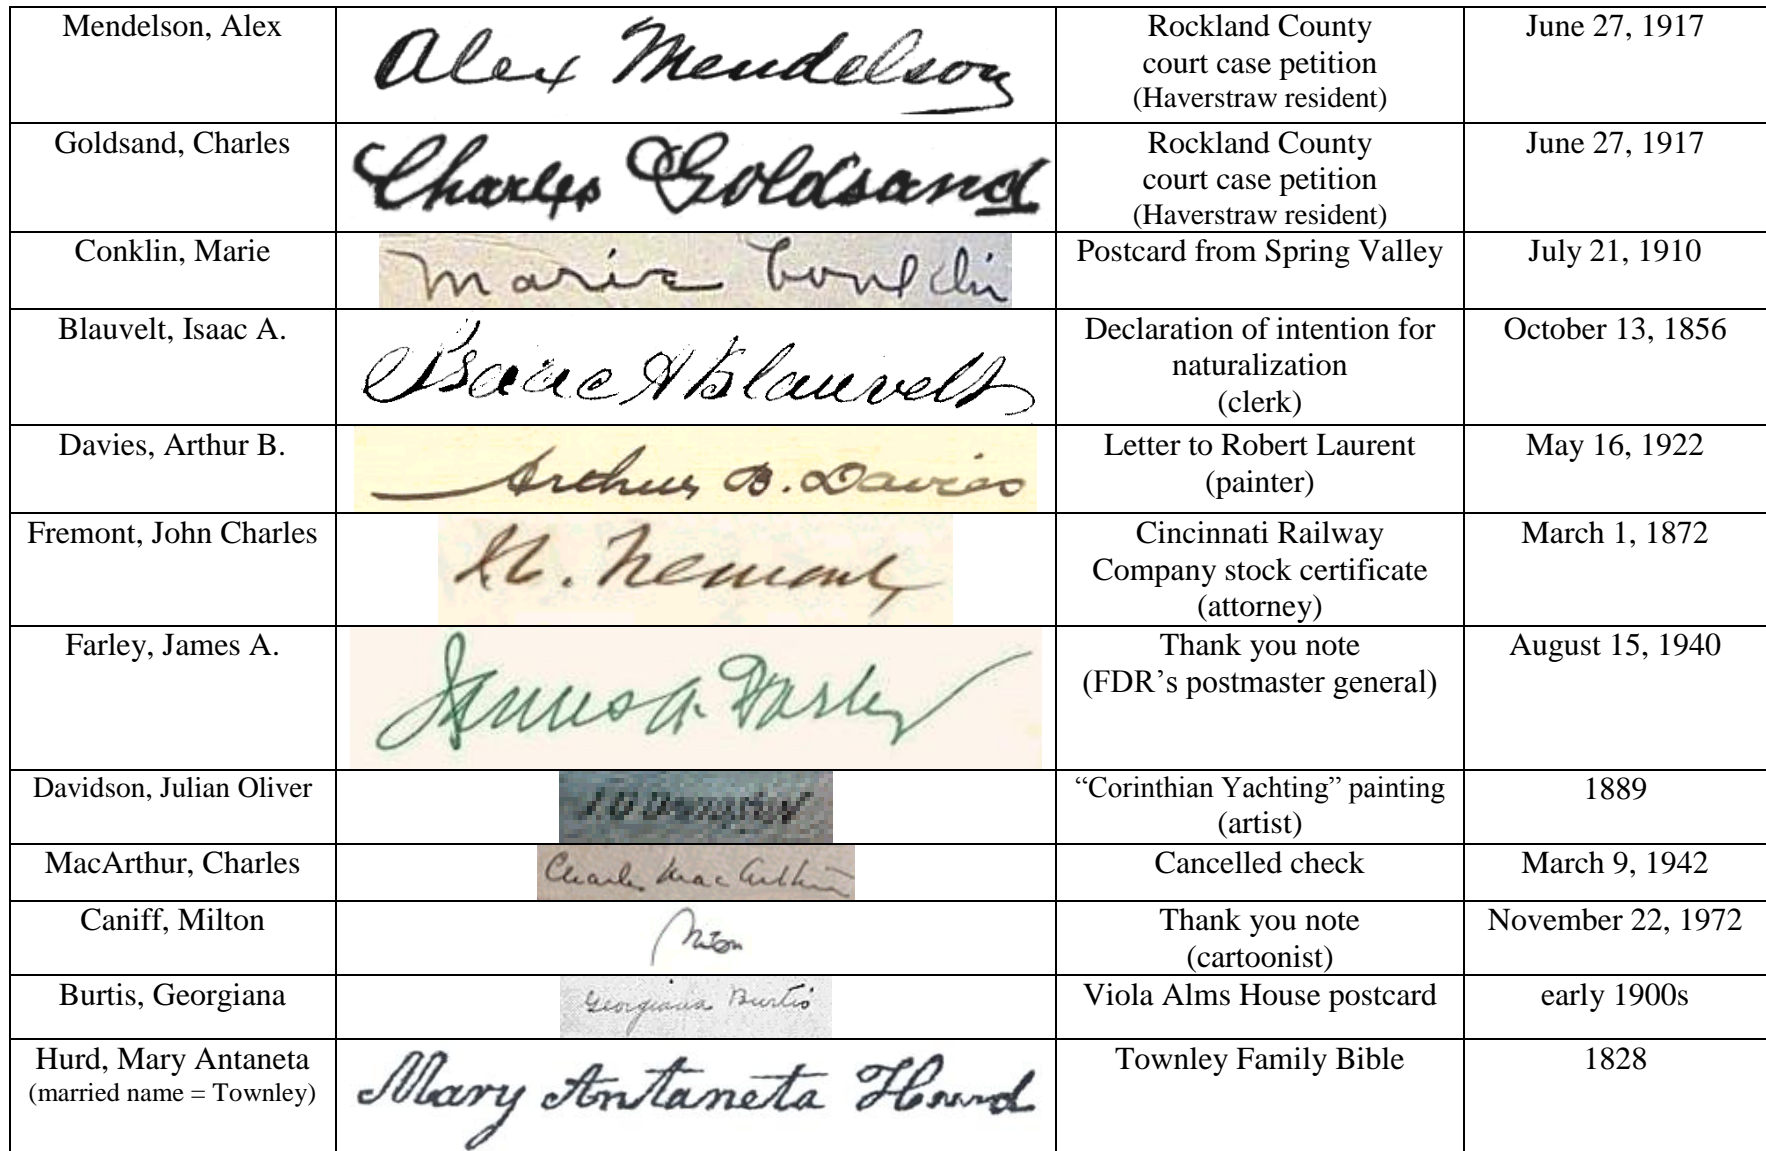 Mendelson, Alex
Alex Mendelson
Rockland County
court case petition
(Haverstraw resident)
June 27, 1917
Goldsand, Charles
Charles Goldsand
Rockland County
court case petition
(Haverstraw resident)
June 27, 1917
Conklin, Marie
Marie Conklin
Postcard from Spring Valley
July 21, 1910
Blauvelt, Isaac A.
Isaac A Blauvelt
Declaration of intention for
naturalization
(clerk)
October 13, 1856
Davies, Arthur B.
Arthur B. Davies
Letter to Robert Laurent
(painter)
May 16, 1922
Fremont, John Charles
Cincinnati Railway
Company stock certificate
(attorney)
March 1, 1872
Farley, James A.
James A. Farley
Thank you note
(FDR’s postmaster general)
August 15, 1940
Davidson, Julian Oliver
J. O. Davidson
“Corinthian Yachting” painting
(artist)
1889
MacArthur, Charles
Charles MacArthur
Cancelled check
March 9, 1942
Caniff, Milton
Milton
Thank you note
(cartoonist)
November 22, 1972
Burtis, Georgiana
Georgiana Burtis
Viola Alms House postcard
early 1900s
Hurd, Mary Antaneta
(married name = Townley)
Mary Antaneta Hurd
Townley Family Bible
1828